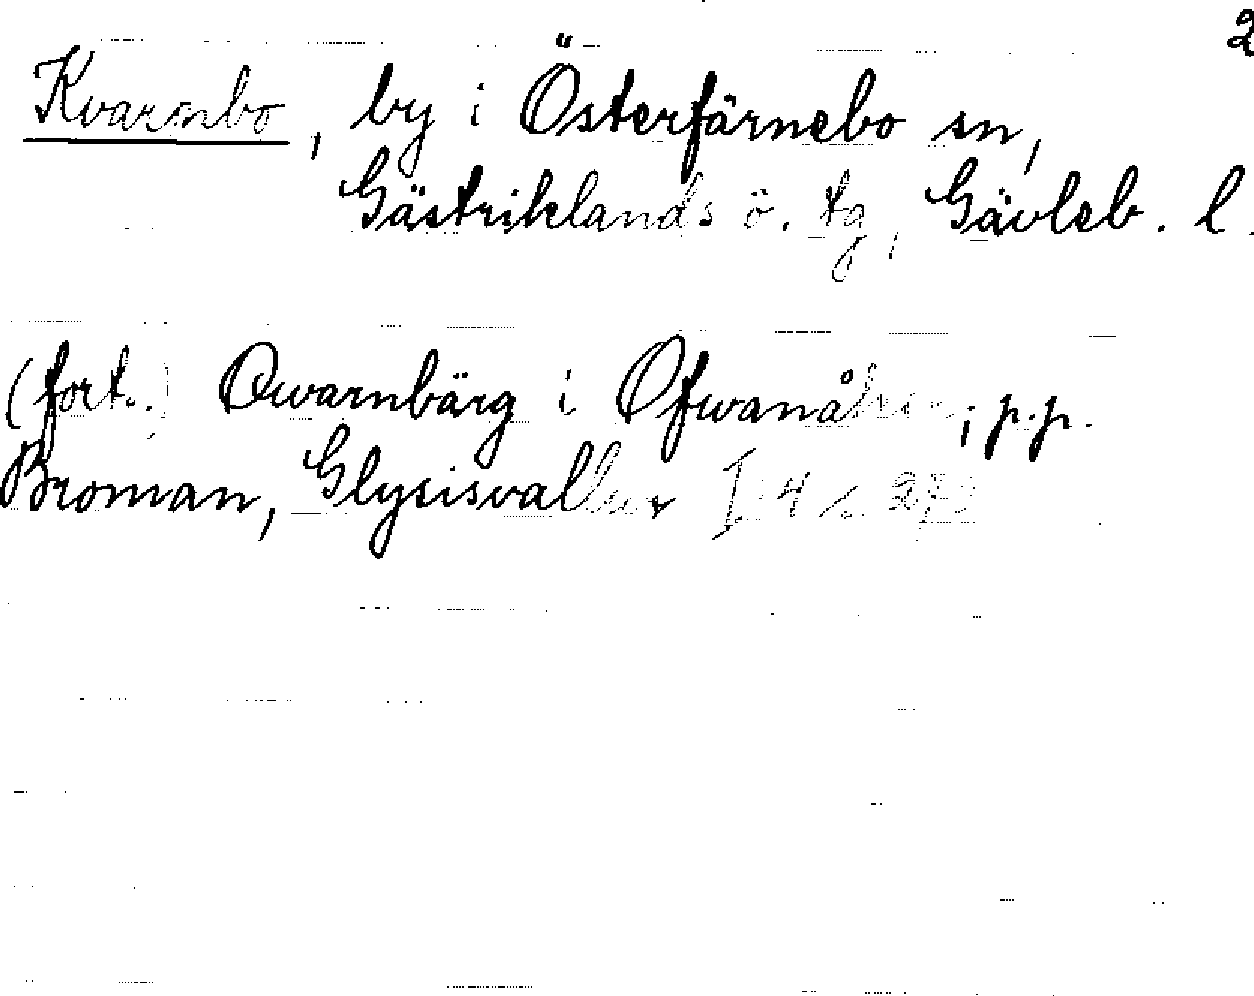 2
Kvarnbo, by i Österfärnebo sn,
Gästriklands ö. tg, Gävleb. l.
(forts.) Qwarnbärg i Ofwanåhen; p.p.
Broman, Glysisvallur I: 4 s.